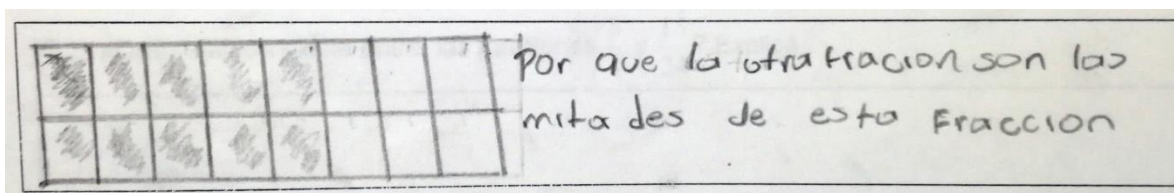 Por que la otra fracion son las
mitades de esta Fraccion